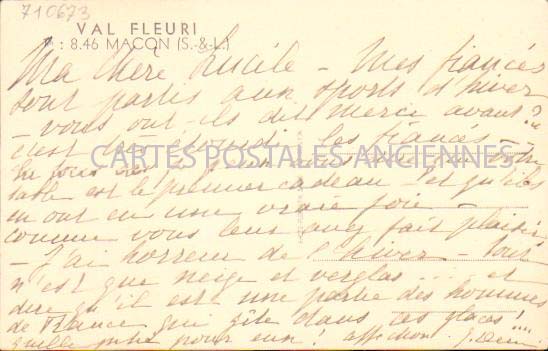 710673
VAL FLEURI
: 8.46 MACON (S.-&-L.)
Ma chère Lucile - Mes fiancés
sont partis aux sports d'hiver
- vous ont-ils dit merci avant ?
c'est les fiancés -
CARTES POSTALES ANCIENNES
table est le premier cadeau - et qu'ils
en ont eu une vraie joie -
comme vous leur avez fait plaisir
- J'ai horreur de l'hiver - tout
n'est que neige et verglas... et
dire qu'il est une partie des hommes
de France qui gîte dans ces glaces !...
quelle pour eux ! affection.